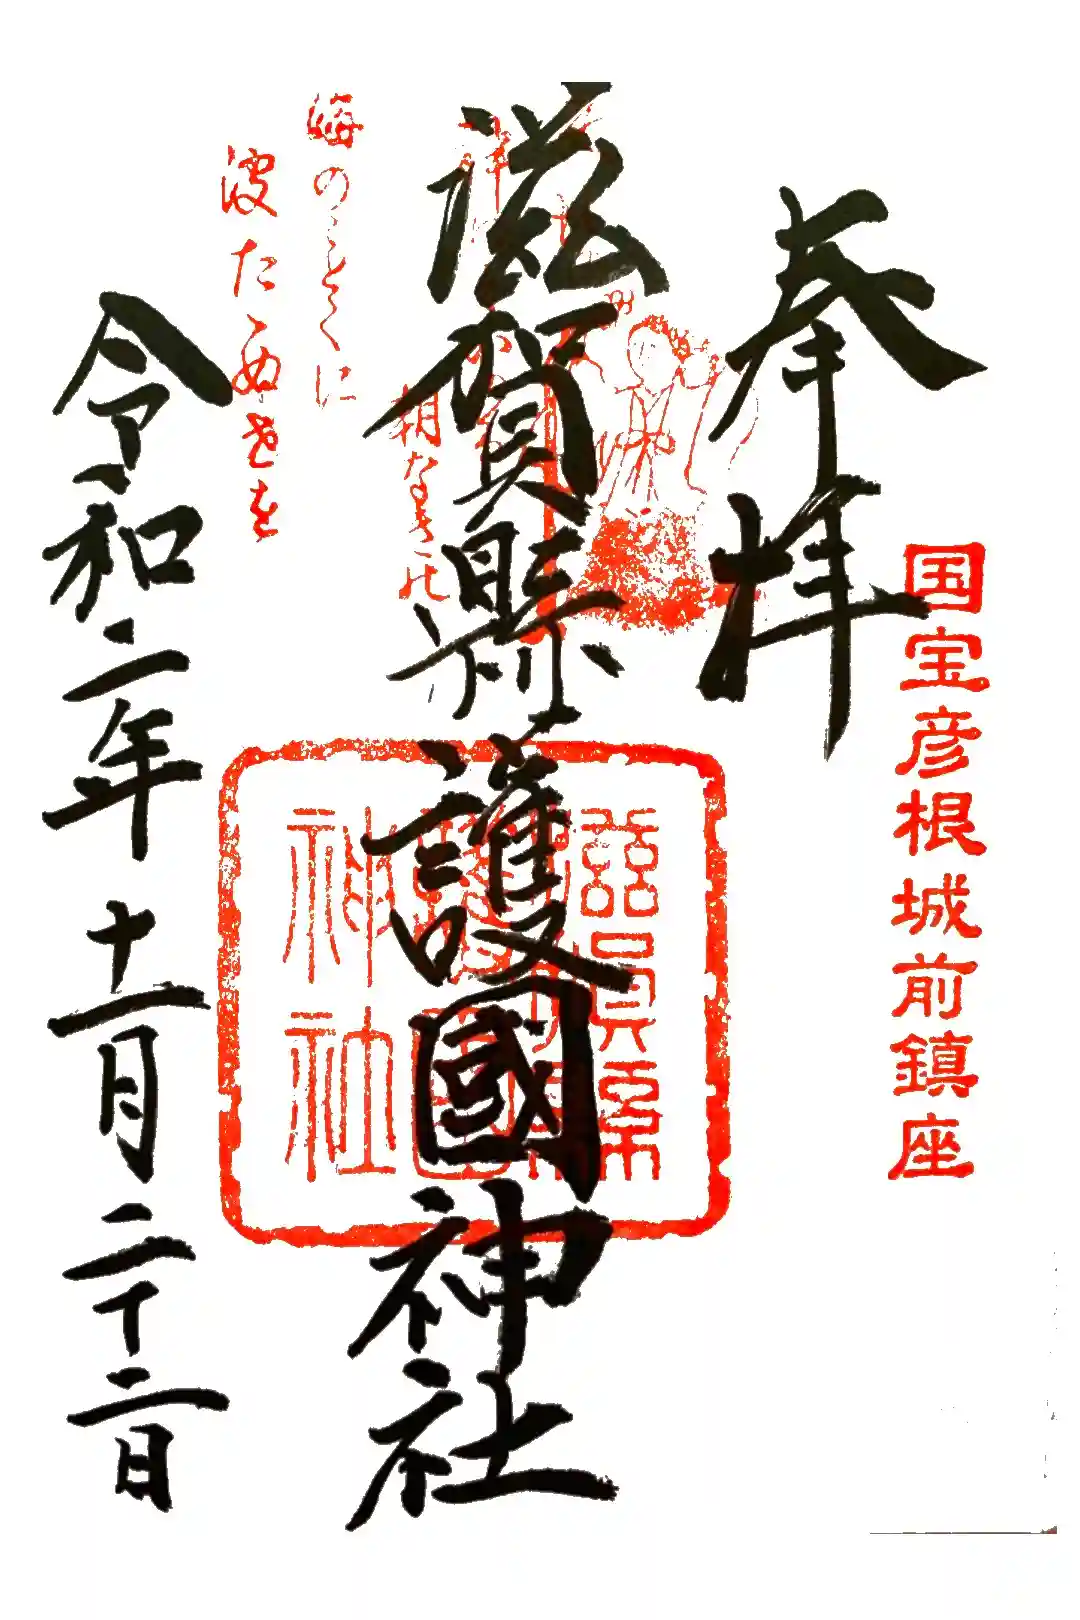 国宝彦根城前鎮座
奉拝
滋賀縣護國神社
滋賀縣
護國
神社
朝なき
海のことくに
波たゝぬ
令和二年十一月二十二日